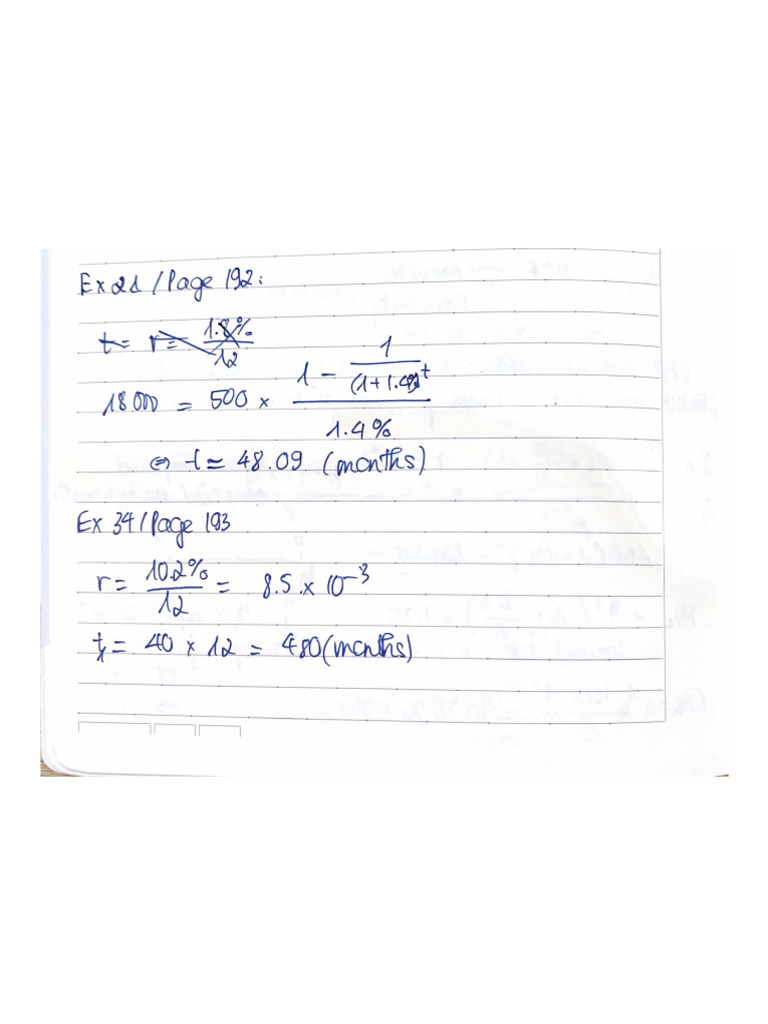 Ex 21 / Page 192:
t = r = 1.8% / 12
18 000 = 500 × (1 − 1 / (1 + 1.4%)^t) / 1.4%
⇔ t ≃ 48.09 (months)
Ex 34 / Page 193
r = 10.2% / 12 = 8.5 × 10^-3
t = 40 × 12 = 480 (months)